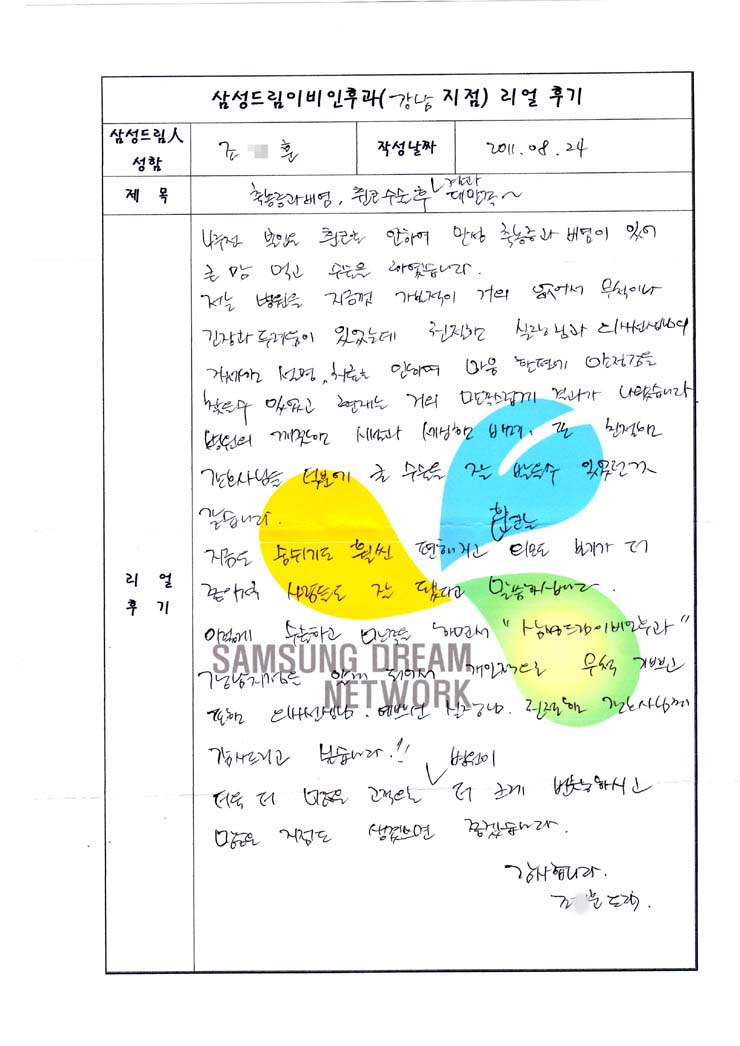 삼성드림이비인후과(강남 지점) 리얼 후기
삼성드림人 성함
조 훈
작성날짜
2011. 08. 24
제 목
축농증과 비염, 휜코수술 후 결과 대만족~
리 얼 후 기
휜코로 인하여 만성 축농증과 비염이 있어
큰 맘 먹고 수술을 하였습니다.
저는 병원을 지금껏 가본적이 거의 없어서 무척이나
긴장과 두려움이 있었는데 친절한 실장님과 의사선생님의
설명, 치료로 인하여 마음 한편에 안정감을
찾을수 있었고 현재는 거의 만족스럽게 결과가 나왔습니다
병원의 깨끗한 시설과 세심한 배려, 또 친절한
간호사님들 덕분에 큰 수술을 잘 받을수 있었던것
같습니다.
지금도 숨쉬기도 훨씬 편해지고 외모도 보기가 더
좋아져 사람들도 잘 됐다고 말씀하십니다.
이렇게 수술하고 만족을 하면서 "삼성드림이비인후과"
강남지점을 알게 되어서 개인적으로 무척 기쁘고
또한 의사선생님, 예쁘신 실장님, 친절한 간호사님께
감사드리고 싶습니다.!!
더욱 더 많은 고객으로 병원이 더 크게 번창하시고
많은 지점도 생겼으면 좋겠습니다.
감사합니다.
조 훈 드림.
SAMSUNG DREAM
NETWORK